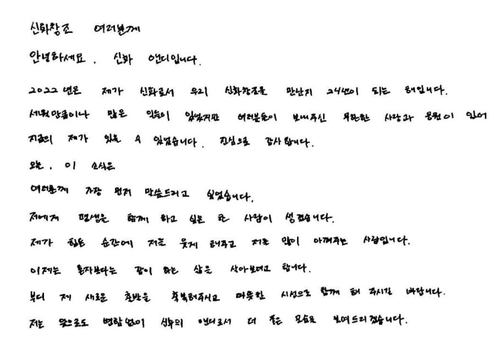 신화창조 여러분께
안녕하세요. 신화 앤디입니다.
2022년은 제가 신화로서 우리 신화창조를 만난지 24년이 되는 해입니다.
세월만큼이나 많은 일들이 있었지만 여러분들이 보내주신 무한한 사랑과 응원이 있어
지금의 제가 있을 수 있었습니다. 진심으로 감사합니다.
오늘, 이 소식을
여러분께 가장 먼저 말씀드리고 싶었습니다.
저에게 평생을 함께 하고 싶은 한 사람이 생겼습니다.
제가 힘든 순간에 저를 웃게 해주고 저를 많이 아껴주는 사람입니다.
이제는 혼자보다는 같이 하는 삶을 살아보려고 합니다.
부디 제 새로운 출발을 축복해주시고 따뜻한 시선으로 함께 해 주시길 바랍니다.
저는 앞으로도 변함없이 신화의 앤디로서 더 좋은 모습으로 보여드리겠습니다.